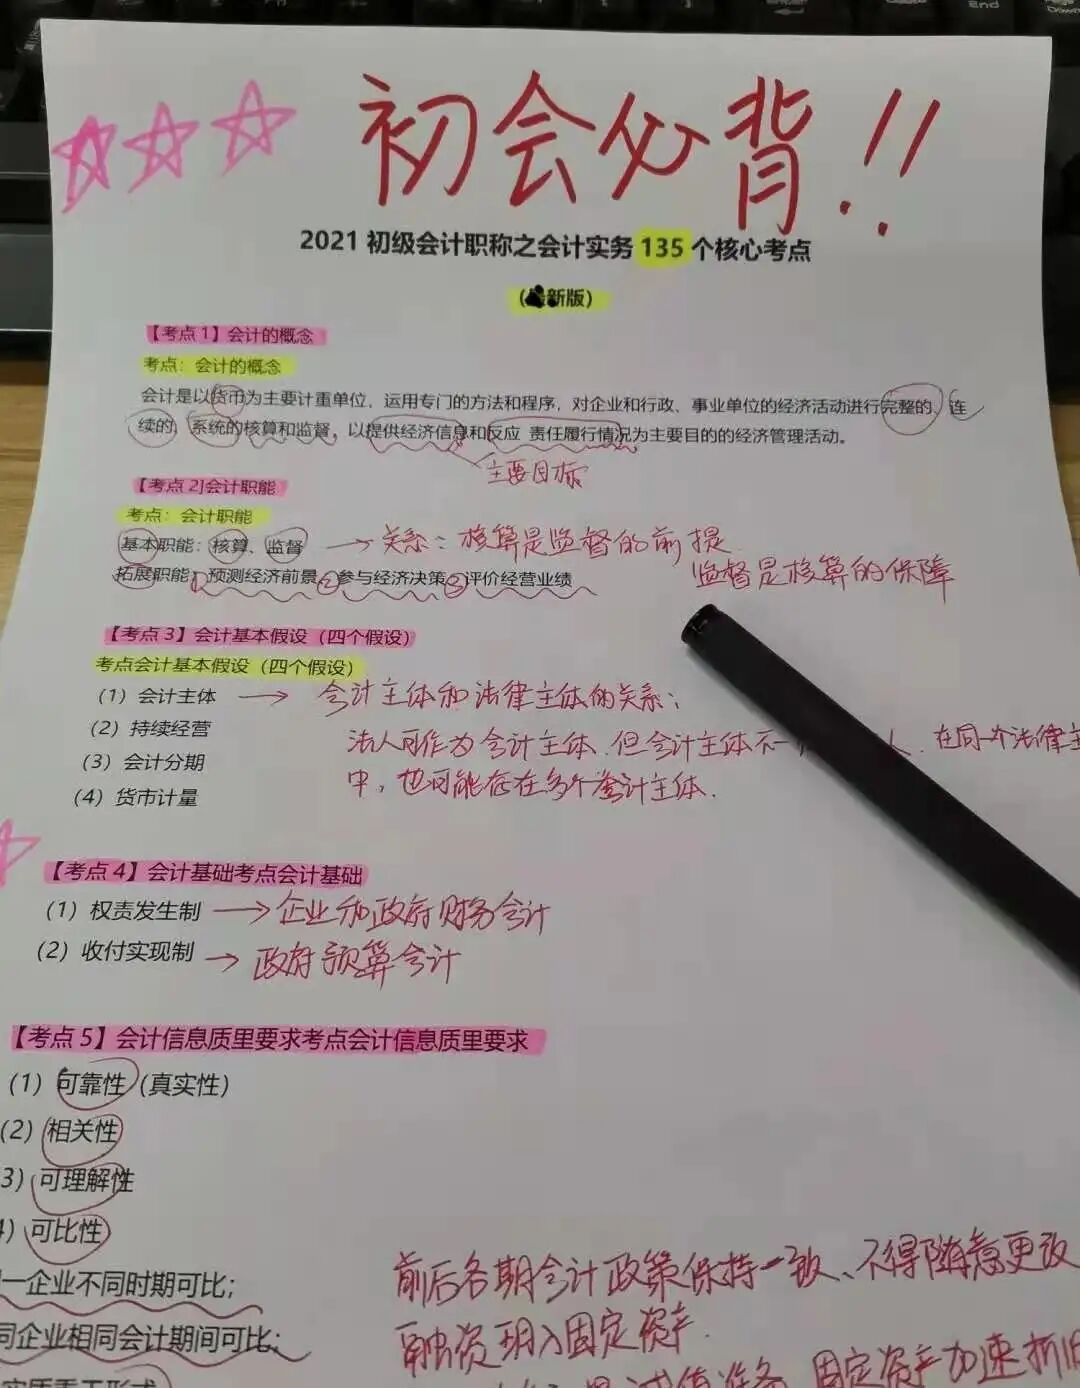 初会必背!!
2021 初级会计职称之会计实务 135 个核心考点
新版)
【考点 1】会计的概念
考点：会计的概念
会计是以货币为主要计重单位，运用专门的方法和程序，对企业和行政、事业单位的经济活动进行完整的、连
续的、系统的核算和监督，以提供经济信息和反应 责任履行情况为主要目的的经济管理活动。
主要目标
【考点 2]会计职能
考点：会计职能
基本职能：核算、监督 → 关系：核算是监督的前提
监督是核算的保障
拓展职能：预测经济前景 ②参与经济决策 ③评价经营业绩
【考点 3】会计基本假设（四个假设）
考点会计基本假设（四个假设）
（1）会计主体 → 会计主体和法律主体的关系：
（2）持续经营
法人可作为会计主体.但会计主体不一 人.在同一个法律主
（3）会计分期
中，也可能存在多个会计主体.
（4）货市计量
【考点 4】会计基础考点会计基础
（1）权责发生制 → 企业和政府财务会计
（2）收付实现制 → 政府预算会计
【考点 5】会计信息质里要求考点会计信息质里要求
（1）可靠性（真实性）
（2）相关性
3）可理解性
）可比性
一企业不同时期可比；
前后各期会计政策保持一致、不得随意更改
同企业相同会计期间可比；
融资租入固定资产.
实质重于形式
减值准备 固定资产加速折旧
End